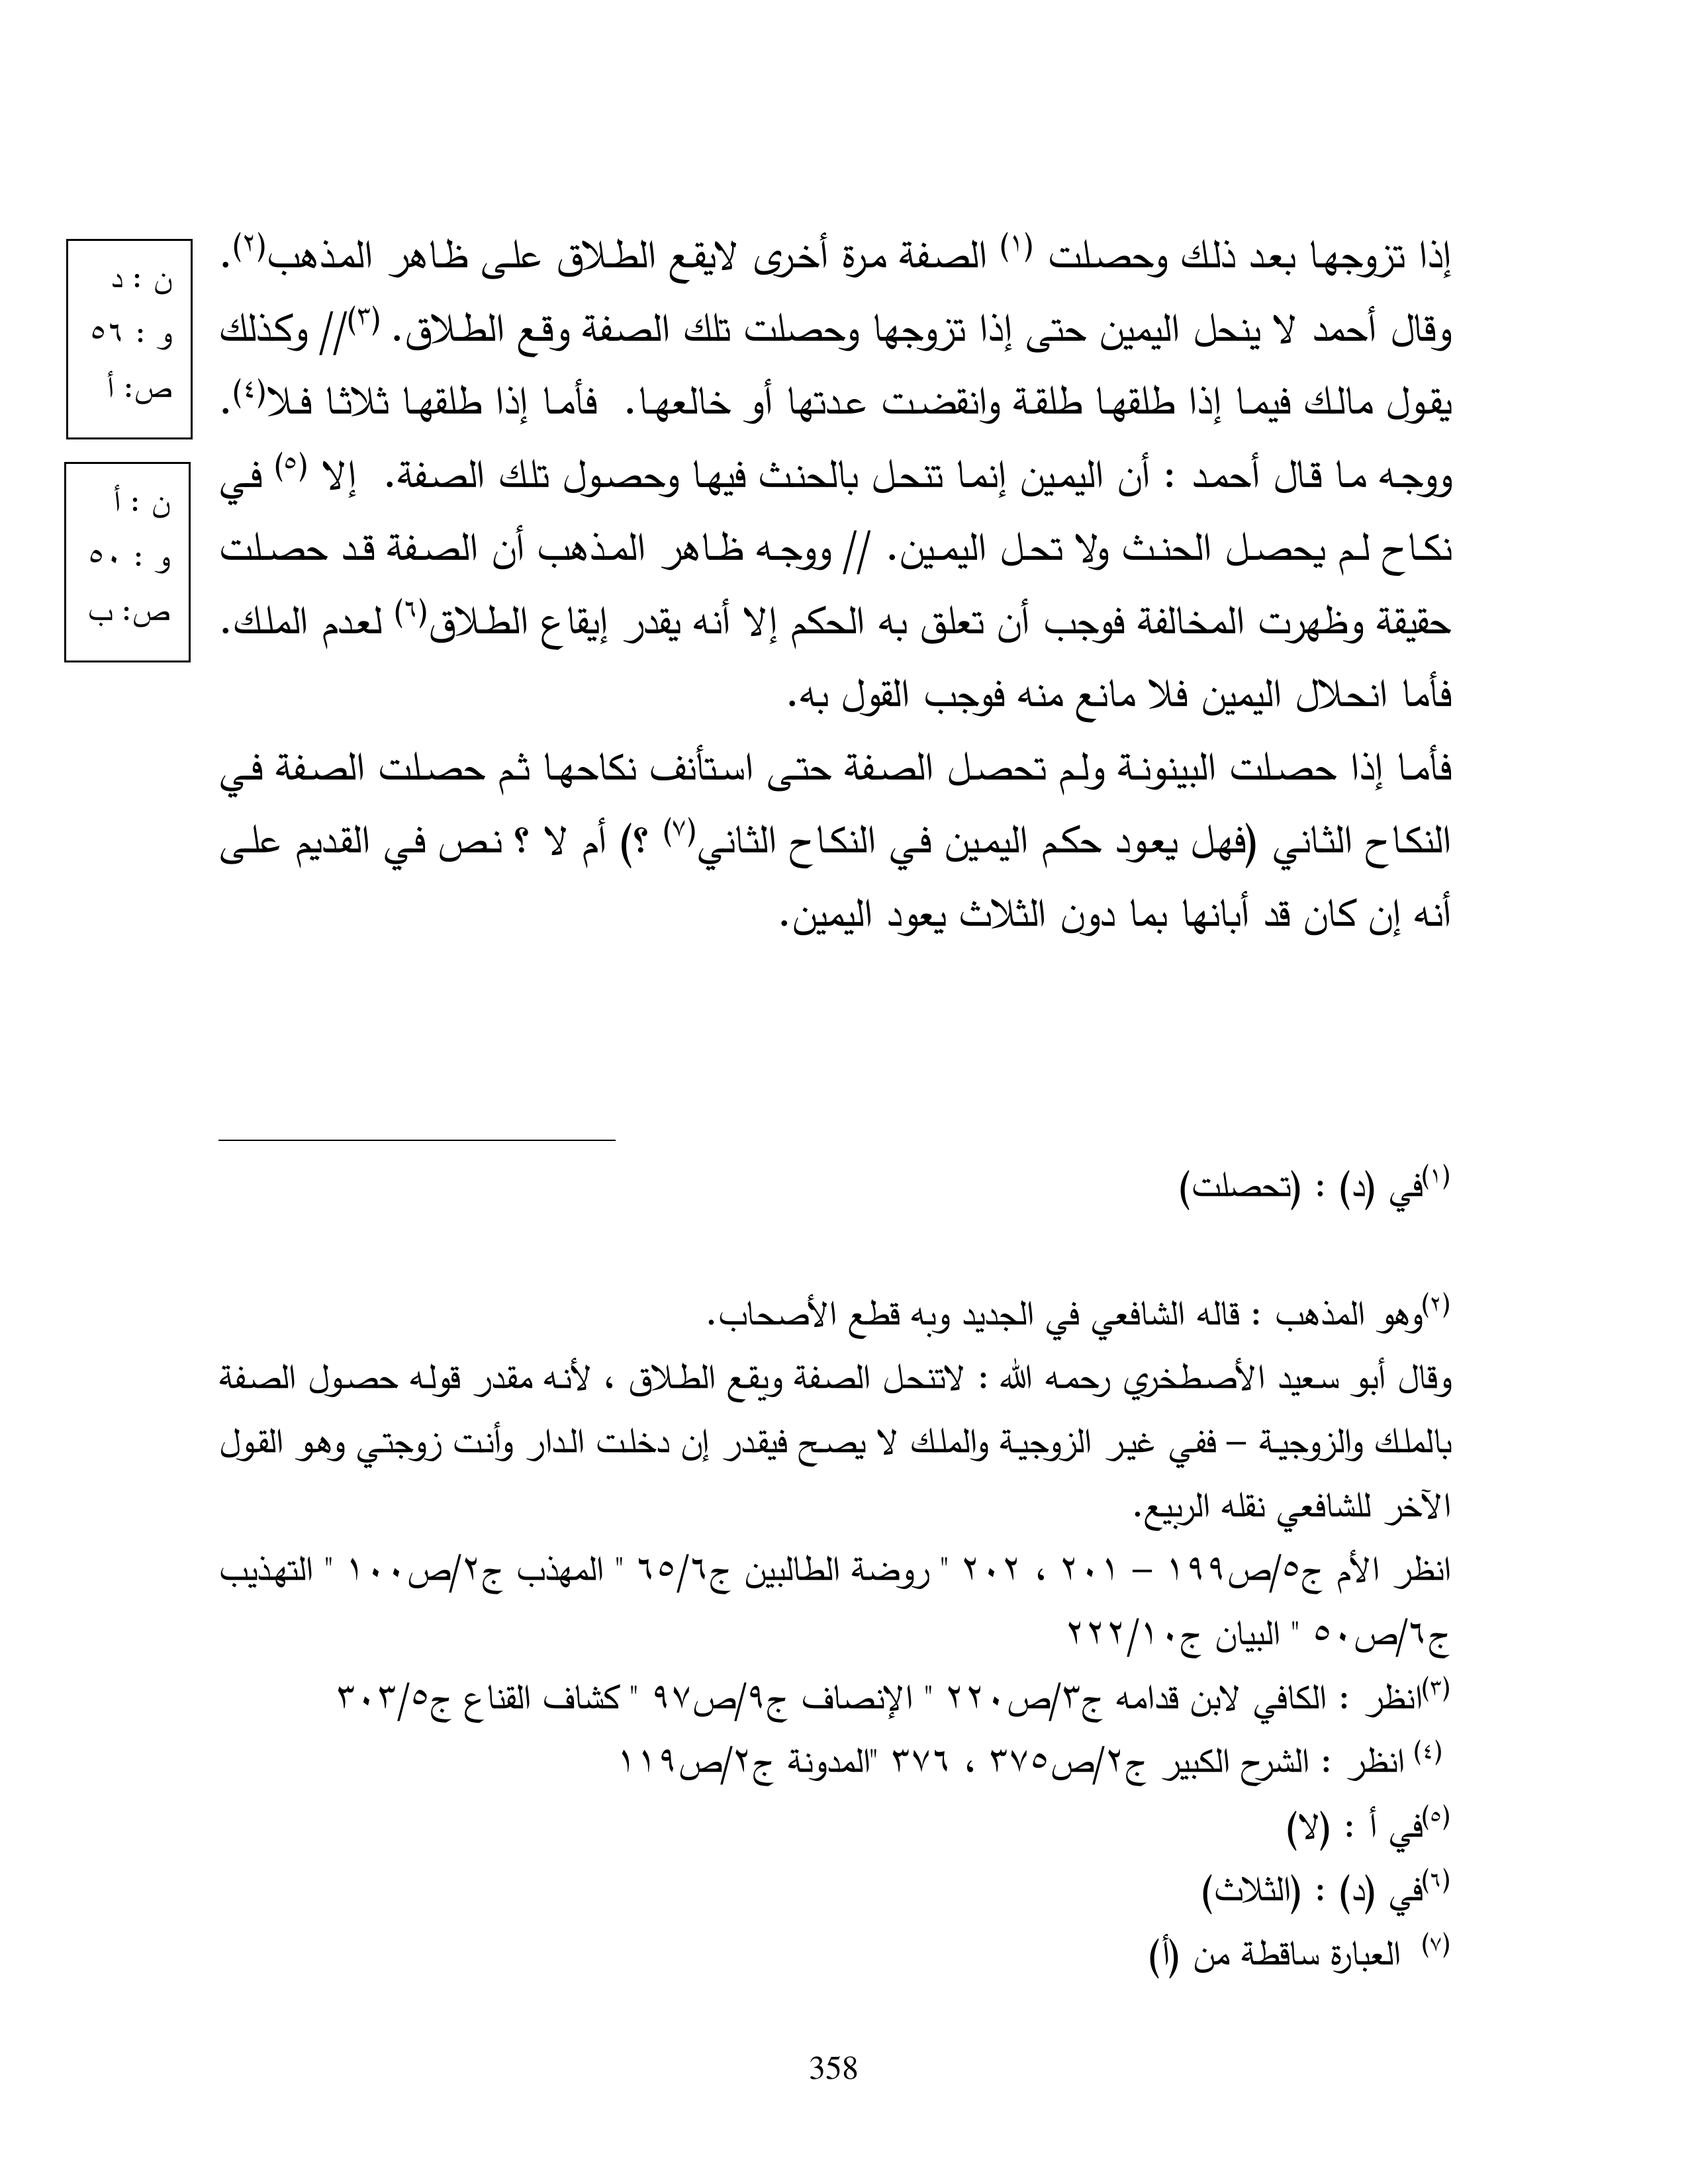 إذا تزوجها بعد ذلك وحصلت (١) الصفة مرة أخرى لايقع الطلاق على ظاهر المذهب(٢).
وقال أحمد لا ينحل اليمين حتى إذا تزوجها وحصلت تلك الصفة وقع الطلاق. (٣)// وكذلك
يقول مالك فيما إذا طلقها طلقة وانقضت عدتها أو خالعها. فأما إذا طلقها ثلاثا فلا(٤).
ووجه ما قال أحمد : أن اليمين إنما تتحل بالحنث فيها وحصول تلك الصفة. إلا (٥) في
نكاح لم يحصل الحنث ولا تحل اليمين. // ووجه ظاهر المذهب أن الصفة قد حصلت
حقيقة وظهرت المخالفة فوجب أن تعلق به الحكم إلا أنه يقدر إيقاع الطلاق(٦) لعدم الملك.
فأما انحلال اليمين فلا مانع منه فوجب القول به.
فأما إذا حصلت البينونة ولم تحصل الصفة حتى استأنف نكاحها ثم حصلت الصفة في
النكاح الثاني (فهل يعود حكم اليمين في النكاح الثاني(٧) ؟) أم لا ؟ نص في القديم على
أنه إن كان قد أبانها بما دون الثلاث يعود اليمين.
ن : د
و : ٥٦
ص: أ
ن : أ
و : ٥٠
ص: ب
(١)في (د) : (تحصلت)
(٢)وهو المذهب : قاله الشافعي في الجديد وبه قطع الأصحاب.
وقال أبو سعيد الأصطخري رحمه الله : لاتنحل الصفة ويقع الطلاق ، لأنه مقدر قوله حصول الصفة
بالملك والزوجية – ففي غير الزوجية والملك لا يصح فيقدر إن دخلت الدار وأنت زوجتي وهو القول
الآخر للشافعي نقله الربيع.
انظر الأم ج٥/ص١٩٩ – ٢٠١ ، ٢٠٢ " روضة الطالبين ج٦/٦٥ " المهذب ج٢/ص١٠٠ " التهذيب
ج٦/ص٥٠ " البيان ج١٠/٢٢٢
(٣)انظر : الكافي لابن قدامه ج٣/ص٢٢٠ " الإنصاف ج٩/ص٩٧ " كشاف القناع ج٥/٣٠٣
(٤) انظر : الشرح الكبير ج٢/ص٣٧٥ ، ٣٧٦ "المدونة ج٢/ص١١٩
(٥)في أ : (لا)
(٦)في (د) : (الثلاث)
(٧) العبارة ساقطة من (أ)
358